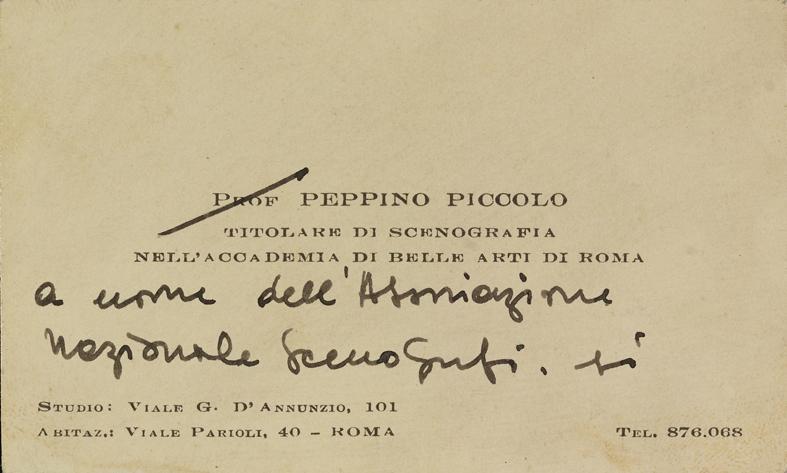 PROF PEPPINO PICCOLO
TITOLARE DI SCENOGRAFIA
NELL'ACCADEMIA DI BELLE ARTI DI ROMA
a nome dell'Associazione
Nazionale Scenografi. si
STUDIO: VIALE G. D'ANNUNZIO, 101
ABITAZ.: VIALE PARIOLI, 40 – ROMA
TEL. 876.068